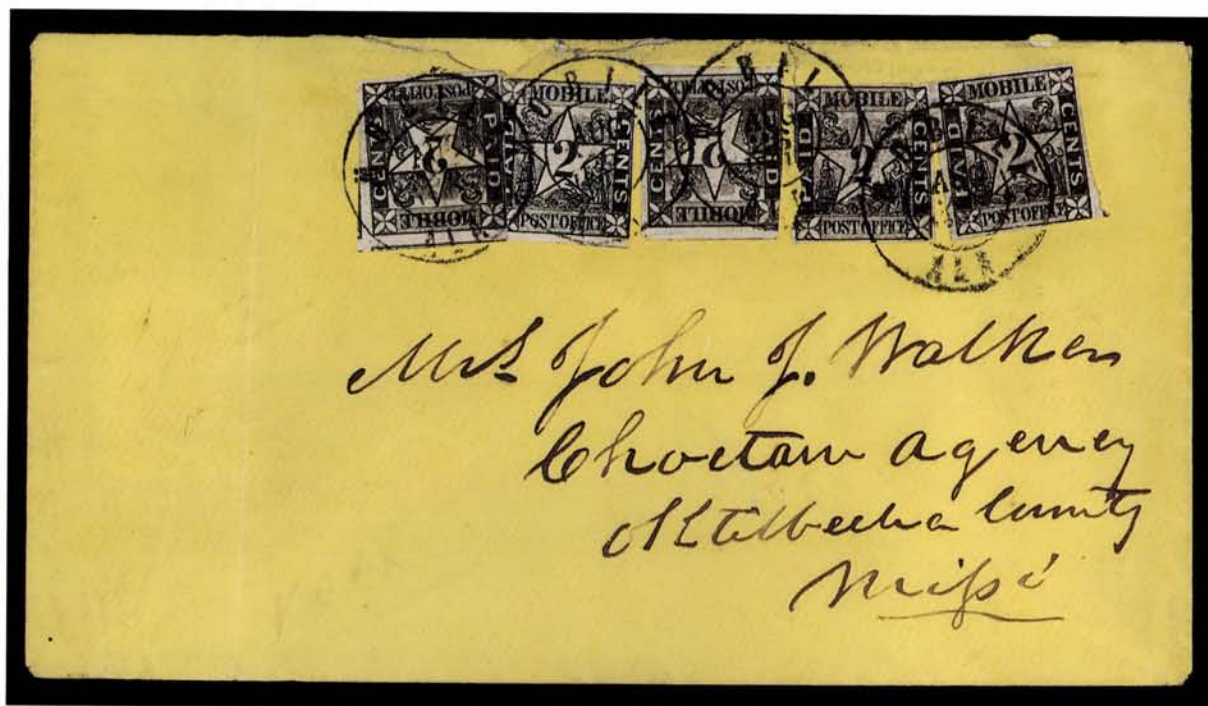 MOBILE PAID 2 CENTS POST OFFICE
MOBILE PAID 2 CENTS POST OFFICE
MOBILE PAID 2 CENTS POST OFFICE
MOBILE PAID 2 CENTS POST OFFICE
MOBILE PAID 2 CENTS POST OFFICE
AUG
ALA
Mrs John J. Walker
Choctaw Agency
Oktibbeha County
Missi